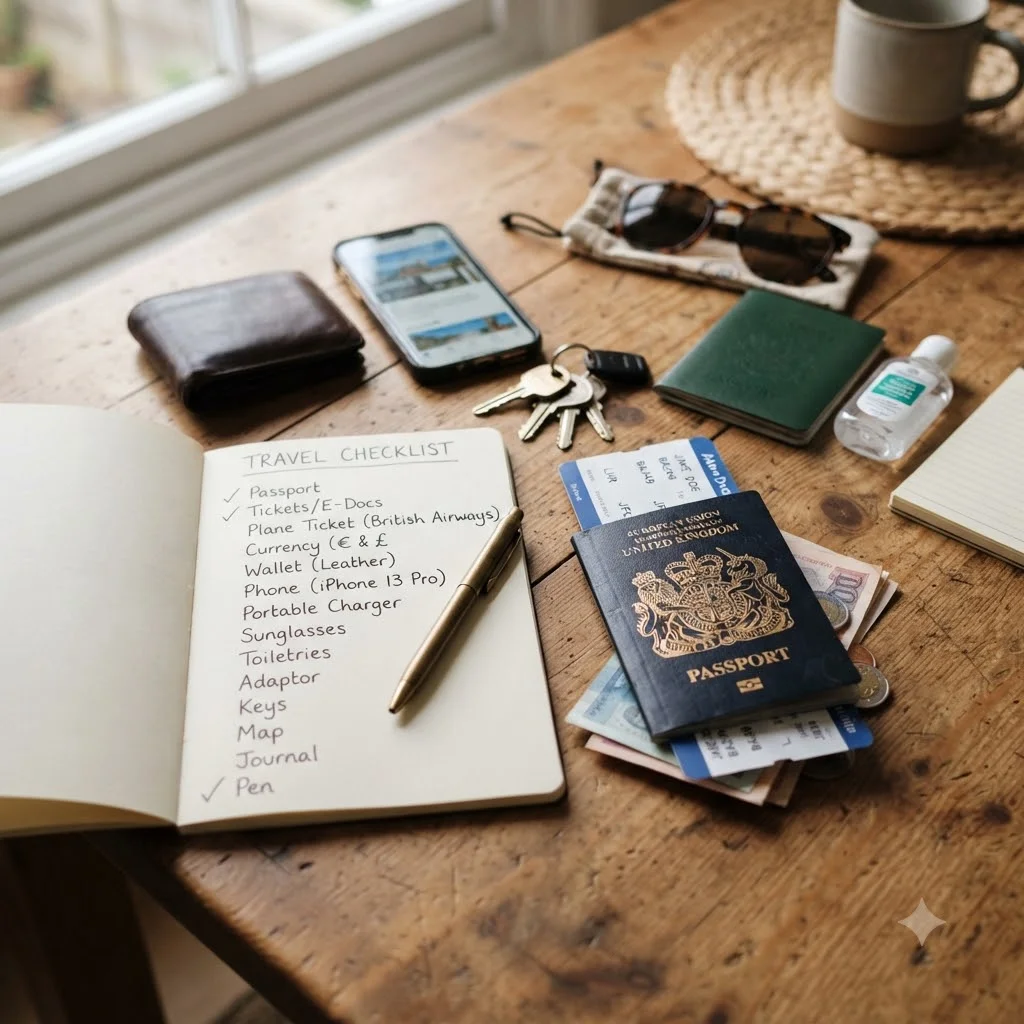 TRAVEL CHECKLIST
✓ Passport
✓ Tickets/E-Docs
Plane Ticket (British Airways)
Currency (€ & £
Wallet (Leather)
Phone (iPhone 13 Pro)
Portable Charger
Sunglasses
Toiletries
Adaptor
Keys
Map
Journal
✓ Pen
UNITED KINGDOM
PASSPORT